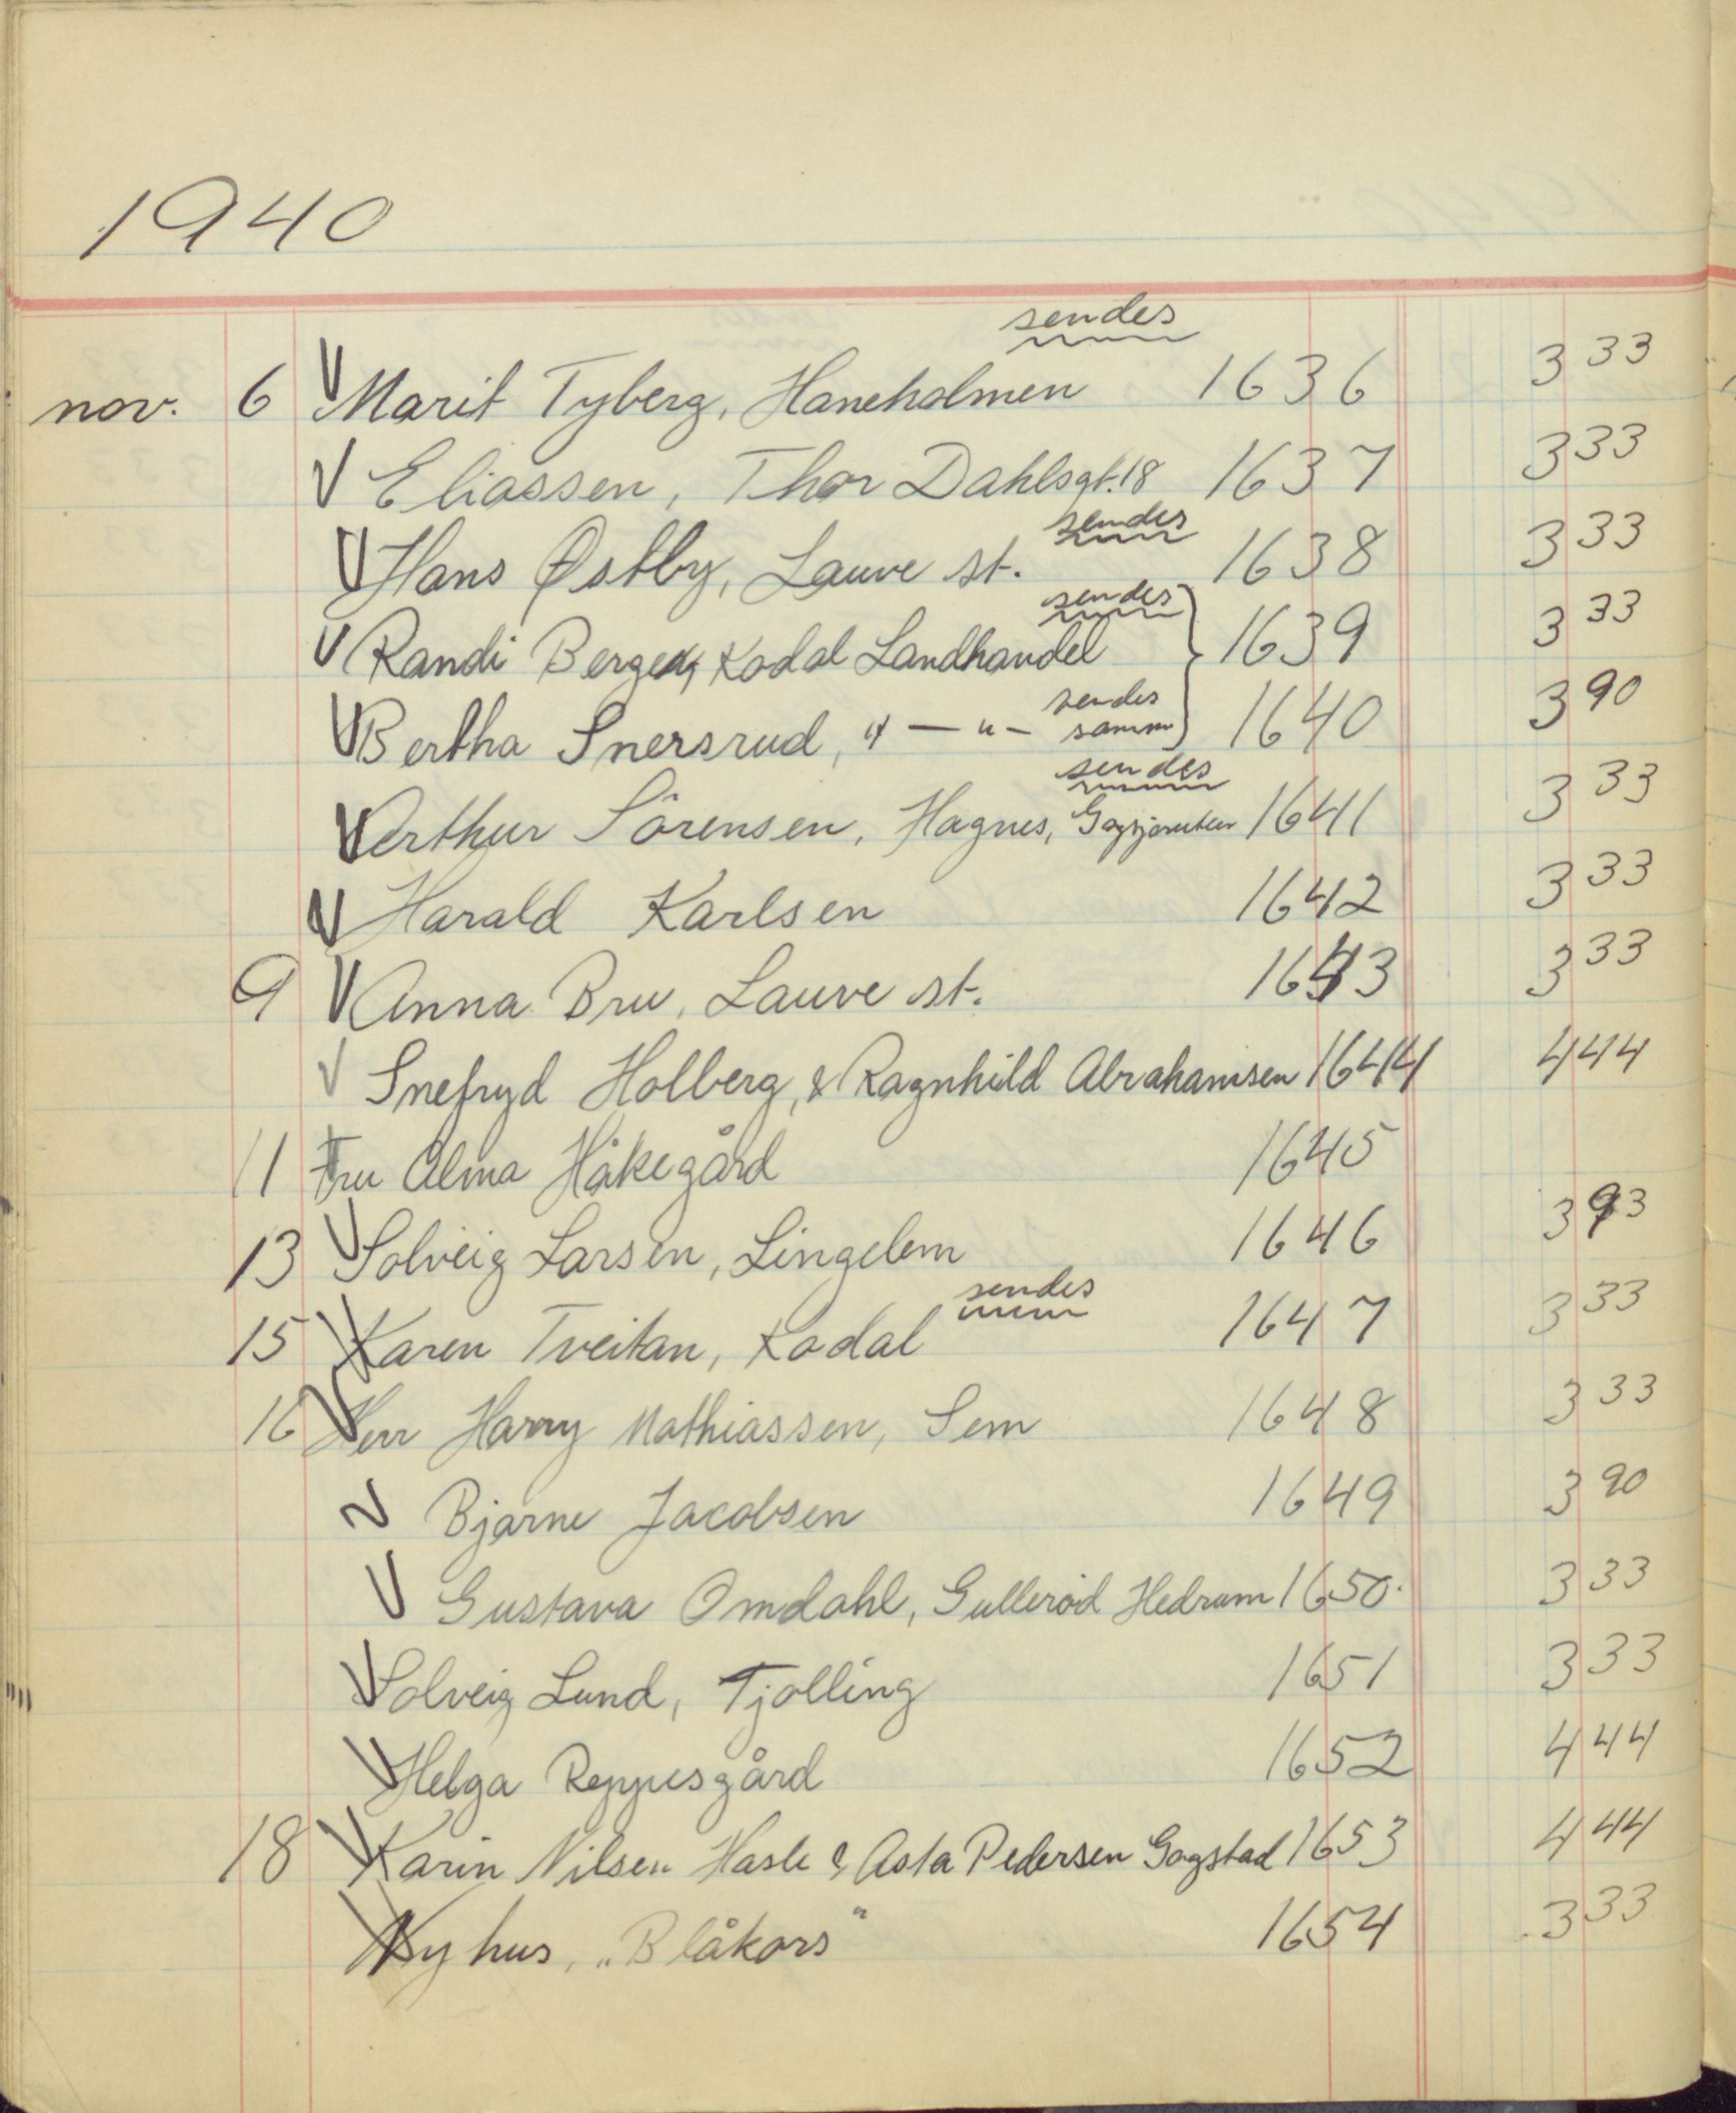 1940
sendes
nov. 6 Marit Tyberg, Haneholmen 1636 3 33
Eliassen, Thor Dahlsgt. 18 1637 3 33
sendes
Hans Østby, Lauve st. 1638 3 33
sendes
Randi Berge, Kodal Landhandel 1639 3 33
sendes
Bertha Snersrud, " — " — samm 1640 3 90
sendes
Arthur Sörensen, Hagnes, 1641 3 33
Harald Karlsen 1642 3 33
9 Anna Bru, Lauve st. 1643 3 33
Snefryd Holberg, & Ragnhild Abrahamsen 1644 4 44
11 Fru Alma Håkegård 1645
13 Solveig Larsen, Lingelem 1646 3 93
sendes
15 Karen Tveitan, Kodal 1647 3 33
16 Herr Harry Mathiassen, Sem 1648 3 33
Bjarne Jacobsen 1649 3 90
Gustava Omdahl, Gulleröd Hedrum 1650. 3 33
Solveig Lund, Tjølling 1651 3 33
Helga 1652 4 44
18 Karin Nilsen Hasle & Asta Pedersen Gogstad 1653 4 44
Nyhus, „Blåkors" 1654 3 33